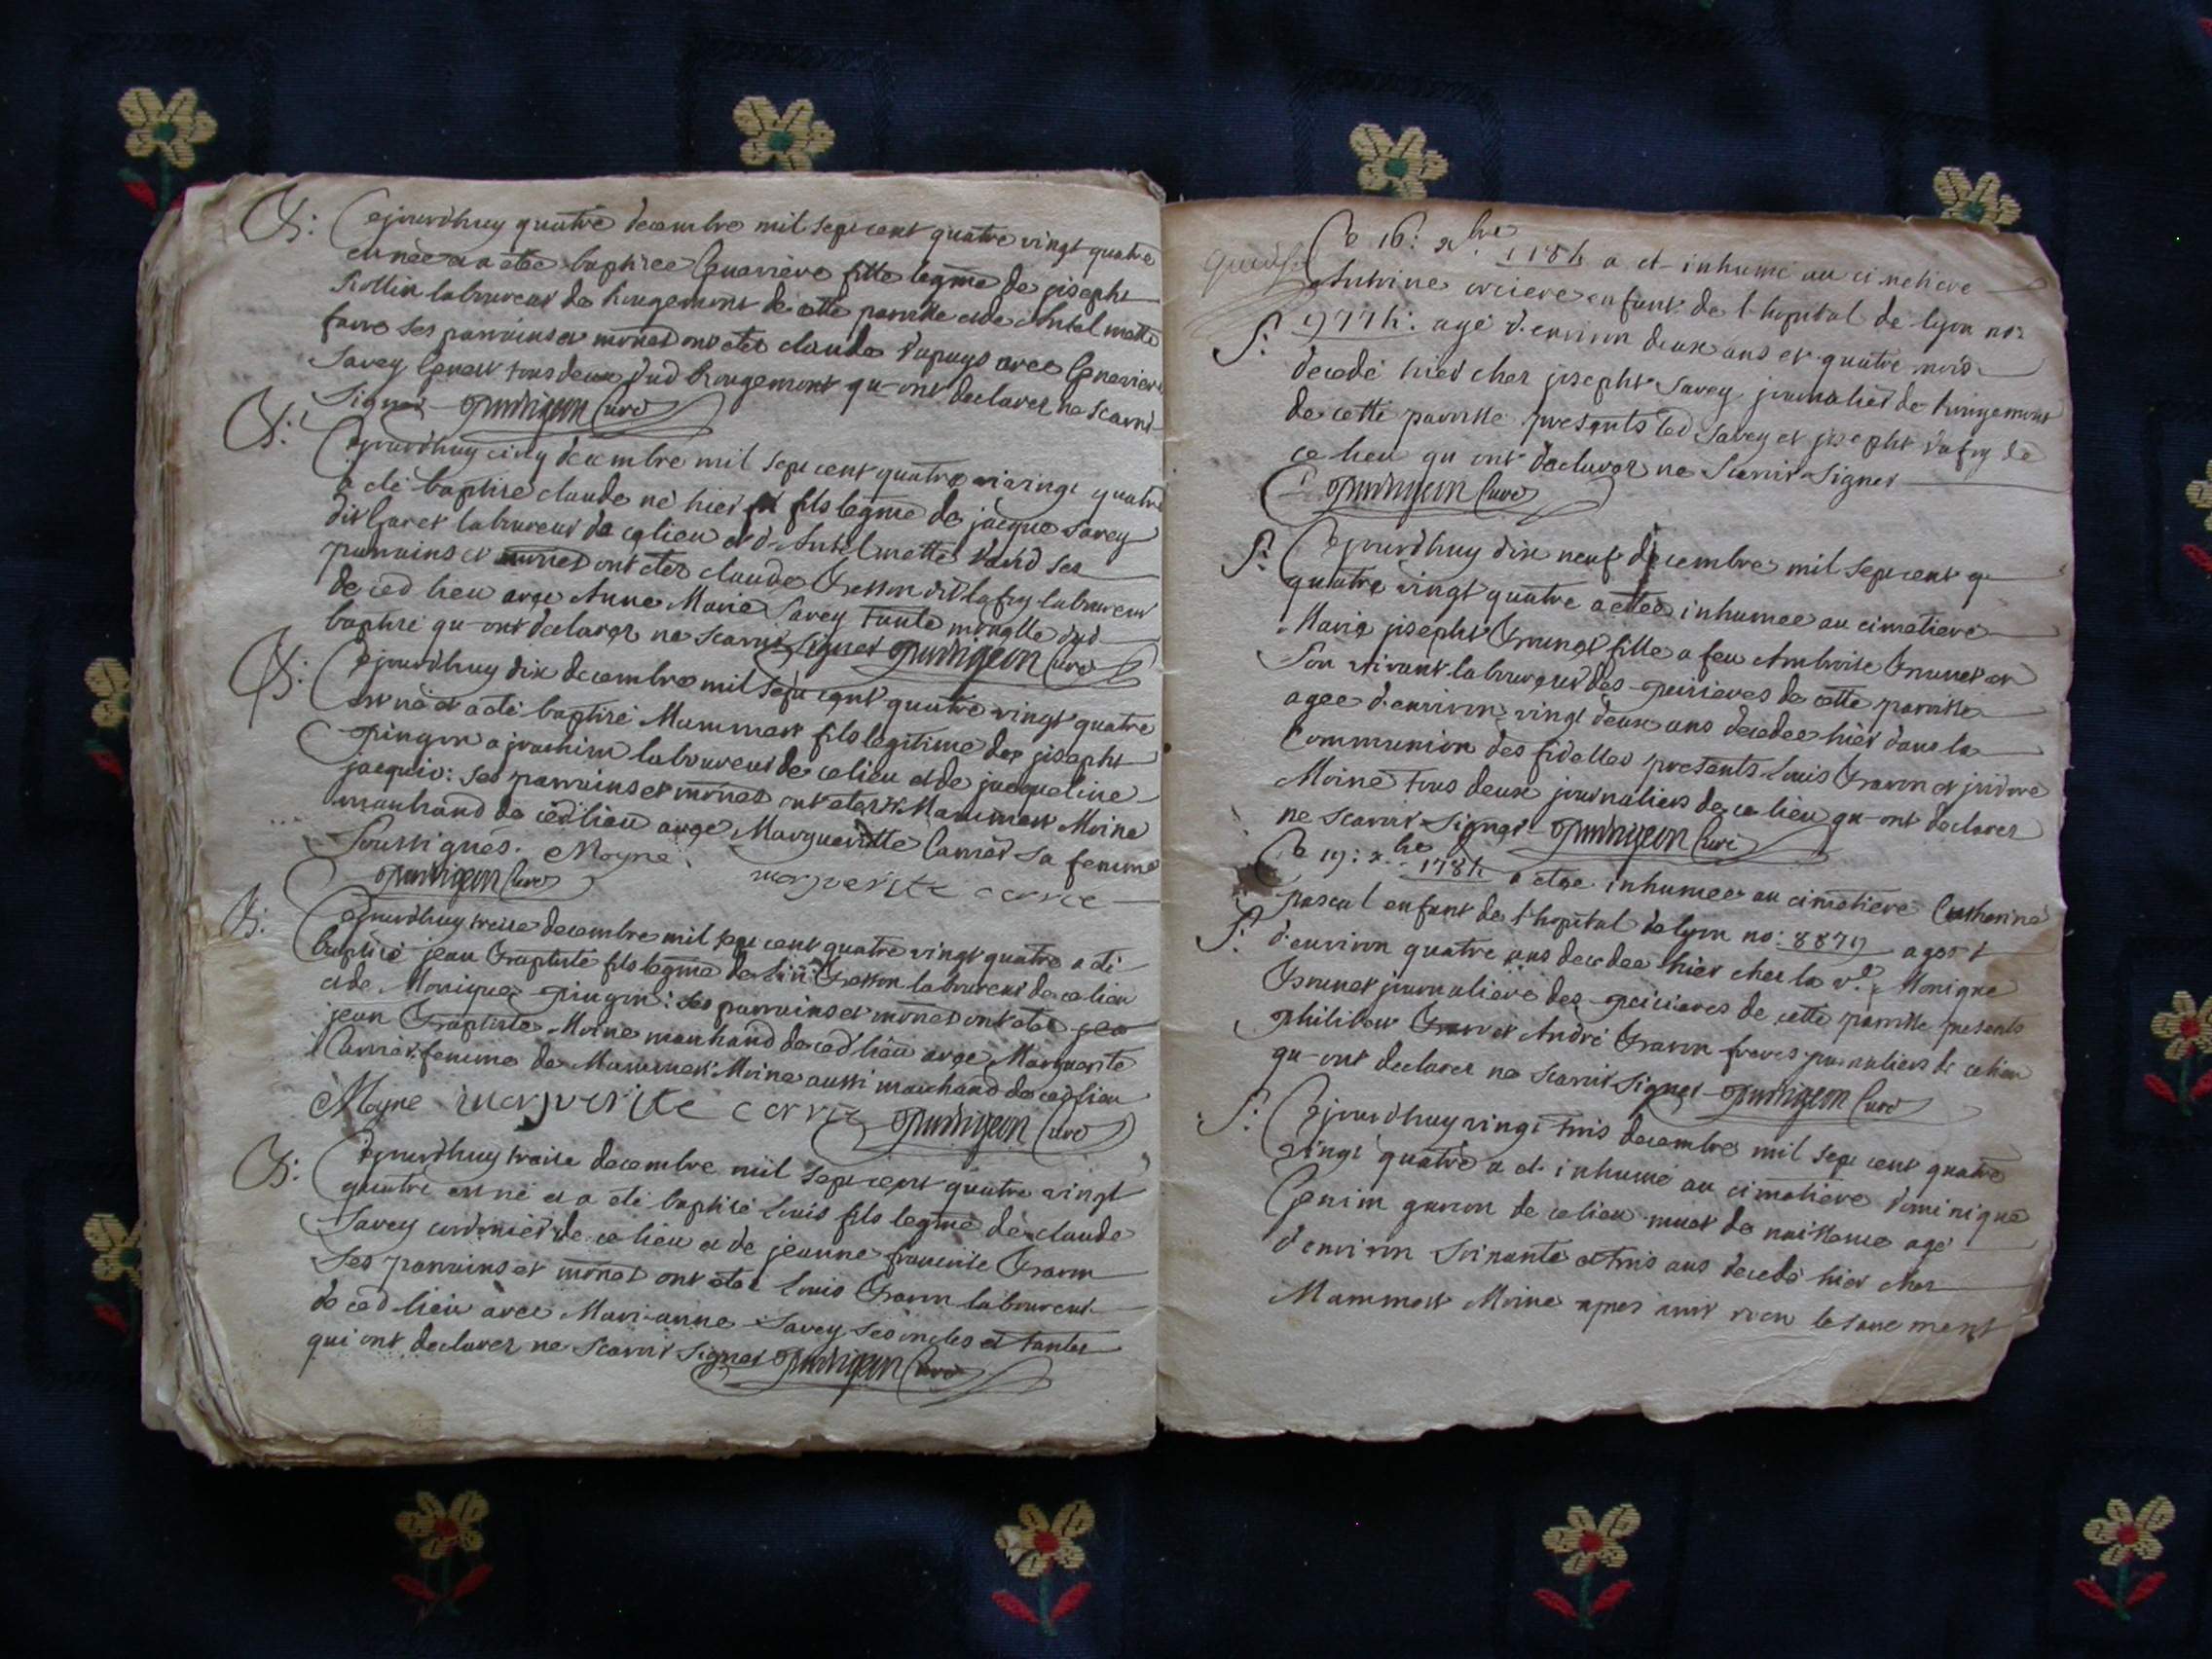 B: Cejourdhuy quatre decembre mil sept cent quatre vingt quatre
est née et a etée baptisée Genevieve fille legme de joseph
Rollin laboureur de Rougemont de cette parroisse et de Antelmette
favre ses parrains et mrnes ont etes claude dupuys avec Genevieve
Savey tous deux dud Rougemont qu-ont declarer ne scavoir
signer curé
B: Cejourdhuy cinq decembre mil sept cent quatre viningt quatre
a été baptisé claude né hier fils legme de jacque Savey
dit laboureur de ce lieu et d'Antelmette ses
parrains et mrnes ont etes claude Besson dit lafuy laboureur
de ced lieu avec Anne Marie Savey tante dud
baptisé qu-ont declarer ne scavoir signer curé
B: Cejourdhuy dix decembre mil sept cent quatre vingt quatre
est né et a été baptisé Mammert fils legitime de joseph
pingon a joachim laboureur de ce lieu et de jacqueline
jacquio: ses parrains et mrnes ont etes Mammert Moine
marchand de ced lieu avec Margueritte Carrier sa femme
soussignés. Moyne marguerite carrie
curé
B: Cejourdhuy treise decembre mil sept cent quatre vingt quatre a été
baptisé jean Baptiste fils legme de Besson laboureur de ce lieu
et de Monique pingon: ses parrains et mrnes ont etes jea
jean Baptiste Moine marchand de ced lieu avec Marguerite
Carrier femme de Mammert Moine aussi marchand de ced lieu
Moyne marguerite carrie curé
B: Cejourdhuy treise decembre mil sept cent quatre vingt
quatre est né et a été baptisé Louis fils legme de claude
Savey cordonier de ce lieu et de jeanne francoise Bravon
ses parrains et mrnes ont etes Louis Bravon laboureur
de ced lieu avec Marianne Savey ses oncles et tantes
qui ont declarer ne scavoir signer curé
Ce 16: xbre 1784 a eté inhumé au cimetiere
Antoine enfant de l'hopital de lyon no:
S: 9774: agé d'environ deux ans et quatre mois
decedé hier ches joseph Savey journalier de Rougemont
de cette parroisse presents led Savey et joseph dafuy de
ce lieu qu ont declarer ne scavoir signer
curé
S: Cejourdhuy dix neuf decembre mil sept cent q
quatre vingt quatre a ettée inhumée au cimetiere
Marie joseph Brunet fille a feu Ambroise Brunet
son vivant laboureur des de cette parroisse
agée d'environ vingt deux ans decedée hier dans la
Communion des fidelles presents Louis Bravon et jsidore
Moine tous deux journaliers de ce lieu qu-ont declarer
ne scavoir signer curé
Ce 19: xbre 1784 a etée inhumée au cimetiere Catherine
pascal enfant de l'hopital de lyon no: 8879 agée
S: d'environ quatre ans decedée hier ches la ve Monique
Brunet journaliere des de cette parroisse presents
philibert Bravon et André Bravon freres journaliers de ce lieu
qu-ont declarer ne scavoir signer curé
S: Cejourdhuy vingt trois decembre mil sept cent quatre
vingt quatre a eté inhumé au cimetiere Dominique
Genin garcon de ce lieu muet de naissance agé
d'environ soixante et trois ans decedé hier ches
Mammert Moine apres avoir recu le sacrement